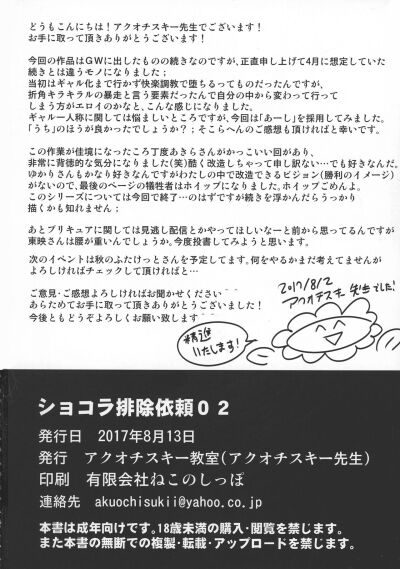 どうもこんにちは！アクオチスキー先生でございます！
お手に取って頂きありがとうございます！
今回の作品はGWに出したものの続きなのですが、正直申し上げて4月に想定していた
続きとは違うモノになりました；
当初はギャル化まで行かず快楽調教で堕ちるってものだったんですが、
折角キラキラルの暴走と言う要素だったんで自分の中から変わって行って
しまう方がエロイのかなと、こんな感じになりました。
ギャル一人称に関しては悩ましいところですが、今回は「あーし」を採用してみました。
「うち」のほうが良かったでしょうか？；そこらへんのご感想も頂ければと幸いです。
この作業が佳境になったころ丁度あきらさんがかっこいい回があり、
非常に背徳的な気分になりました（笑）酷く改造しちゃって申し訳ない…でも好きなんだ。
ゆかりさんもかなり好きなんですがわたしの中で改造できるビジョン（勝利のイメージ）
がないので、最後のページの犠牲者はホイップになりました。ホイップごめんよ。
このシリーズについては今回で終了…のはずですが続きを浮かんだらうっかり
描くかも知れません；
あとプリキュアに関しては見逃し配信とかやってほしいなーと前から思ってるんですが
東映さんは腰が重いんでしょうか。今度投書してみようと思います。
次のイベントは秋のふたけっとさんを予定してます。何をやるかまだ考えてませんが
よろしければチェックして頂ければと…
ご意見・ご感想よろしければお聞かせください
あらためてお手に取って頂きありがとうございました！
今後ともどうぞよろしくお願い致します
2017/8/2
アクオチスキー先生でした！
精進
いたします！
ショコラ排除依頼０２
発行日　2017年8月13日
発行　アクオチスキー教室（アクオチスキー先生）
印刷　有限会社ねこのしっぽ
連絡先　akuochisukii@yahoo.co.jp
本書は成年向けです。18歳未満の購入・閲覧を禁じます。
また本書の無断での複製・転載・アップロードを禁じます。